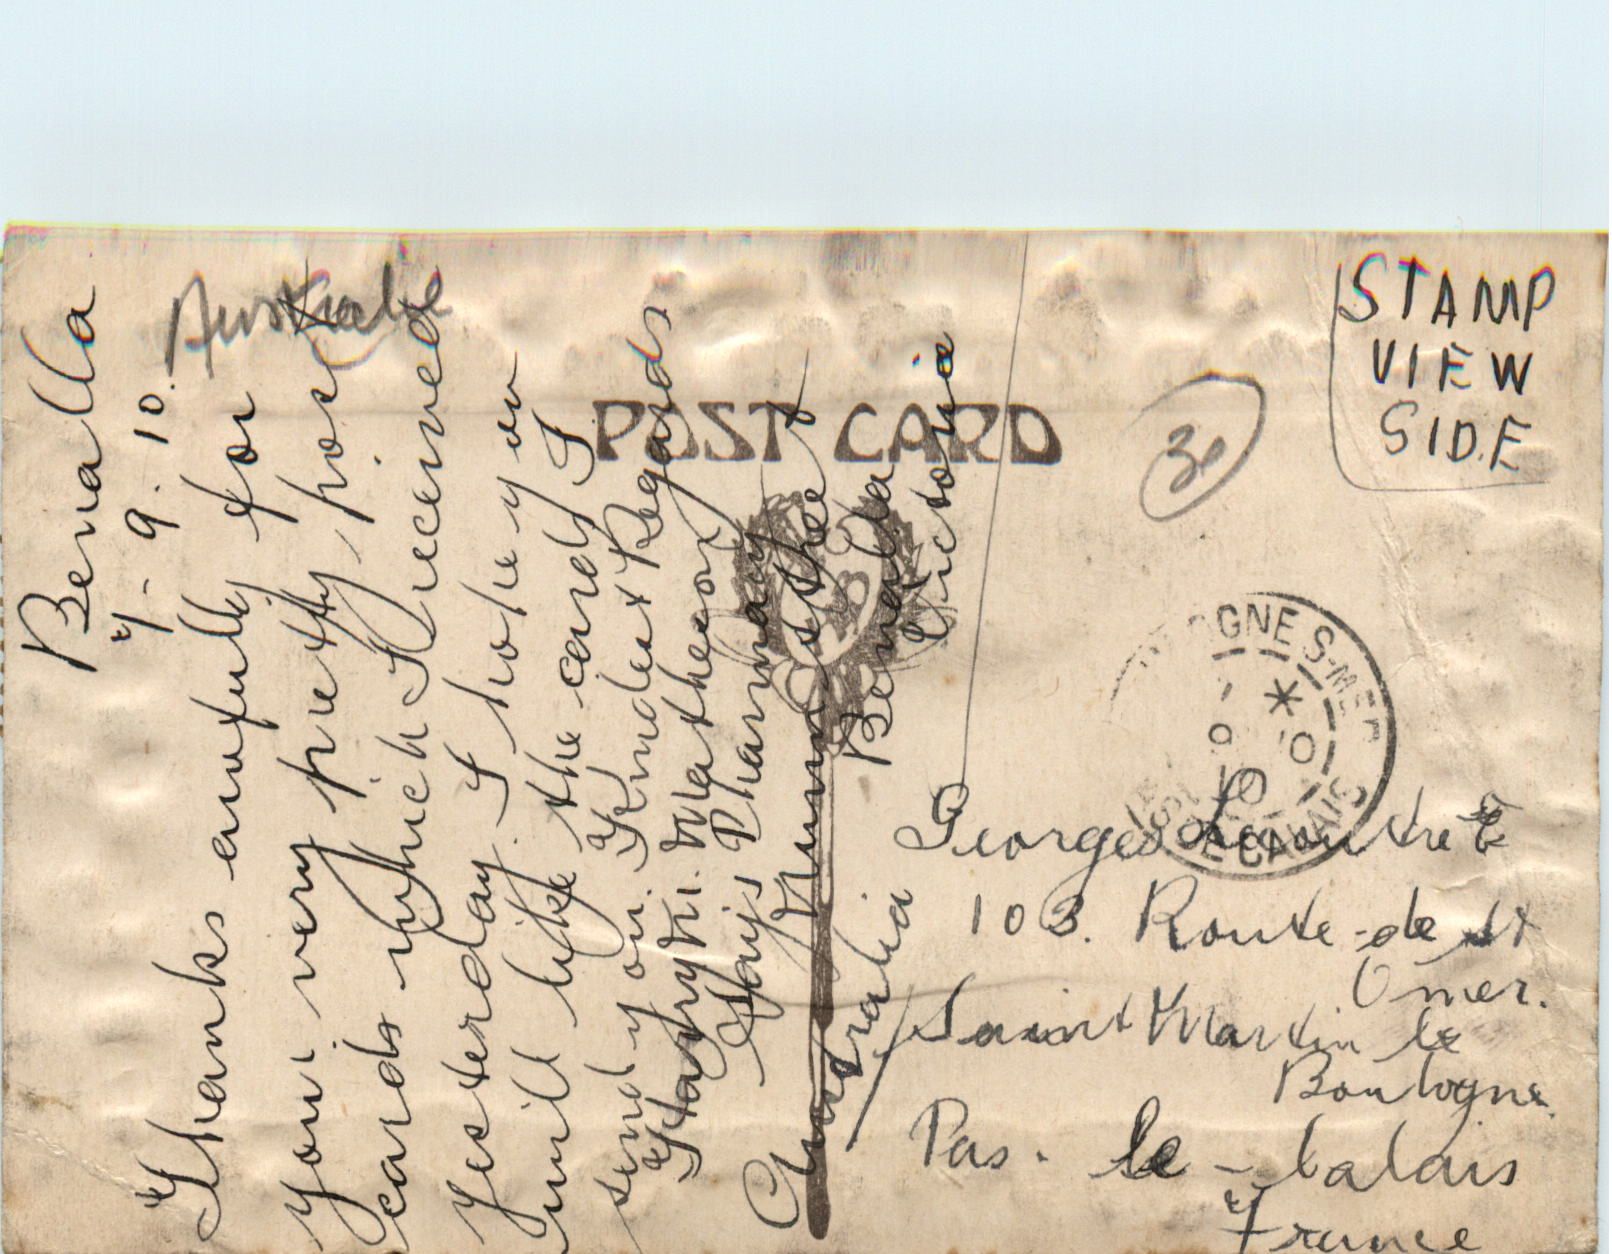 Benalla
7-9.10.
Australie
Thanks awfully for
your very pretty post
cards which I received
Yesterday. I hope you
will like the cards I
send you. Kindest Regards
Harry W. Matheson
Hays Pharmacy
Nunn Street
Benalla
Victoria
Australia
POST CARD
STAMP
VIEW
SIDE
30
OGNE S-MER
CALAIS
Georges
103. Route-de St
Omer.
Saint Martin le
Boulogne.
Pas. le - Calais
France